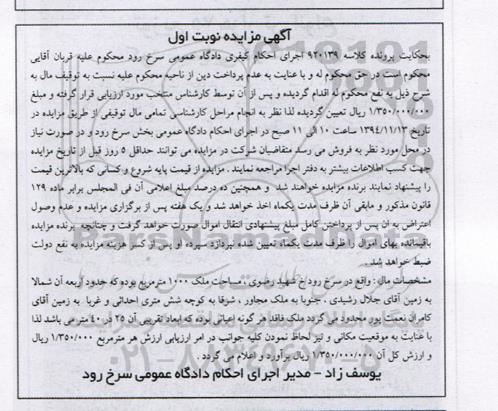 آگهی مزایده نوبت اول
بحکایت پرونده کلاسه ۹۲۰۱۳۹ اجرای احکام کیفری دادگاه عمومی سرخ رود محکوم علیه قربان آقایی
محکوم است در حق محکوم له و با عنایت به عدم پرداخت دین از ناحیه محکوم علیه نسبت به توقیف مال به
شرح ذیل به نفع محکوم له اقدام گردیده و پس از آن توسط کارشناس منتخب مورد ارزیابی قرار گرفته و مبلغ
۱/۳۵۰/۰۰۰/۰۰۰ ریال تعیین گردیده لذا نظر به انجام مراحل کارشناسی تمامی مال توقیفی از طریق مزایده در
تاریخ ۱۳۹۴/۱۱/۱۳ ساعت ۱۰ الی ۱۱ صبح در اجرای احکام دادگاه عمومی بخش سرخ رود و در صورت نیاز
در محل مورد نظر به فروش می رسد متقاضیان شرکت در مزایده می توانند حداقل ۵ روز قبل از تاریخ مزایده
جهت کسب اطلاعات بیشتر به دفتر اجرا مراجعه نمایند . مزایده از قیمت پایه شروع و کسانی که بالاترین قیمت
را پیشنهاد نمایند برنده مزایده خواهند شد و همچنین ده درصد مبلغ اعلامی آن فی المجلس برابر ماده ۱۲۹
قانون مذکور و مابقی آن ظرف مدت یکماه اخذ خواهد شد و یک هفته پس از برگزاری مزایده و عدم وصول
اعتراض به آن پس از پرداختن کامل مبلغ پیشنهادی انتقال اموال صورت خواهد گرفت و چنانچه برنده مزایده
باقیمانده بهای اموال را ظرف مدت یکماه تعیین شده نپردازد سپرده او پس از کسر هزینه مزایده به نفع دولت
ضبط خواهد شد .
مشخصات مال : واقع در سرخ رود خ شهید رضوی ، مساحت ملک ۱۰۰۰ مترمربع بوده که حدود اربعه آن شمالا
به زمین آقای جلال رشیدی ، جنوبا به ملک مجاور ، شرقا به کوچه شش متری احداثی و غربا به زمین آقای
کامران نعمت پور محدود می گردد ملک فاقد هر گونه اعیانی بوده که ابعاد تقریبی آن ۲۵ در ۴۰ متر می باشد لذا
با عنایت به موقعیت مکانی و نیز لحاظ نمودن کلیه جوانب در امر ارزیابی ارزش هر مترمربع ۱/۳۵۰/۰۰۰ ریال
و ارزش کل آن ۱/۳۵۰/۰۰۰/۰۰۰ ریال برآورد و اعلام می گردد .
یوسف زاد - مدیر اجرای احکام دادگاه عمومی سرخ رود